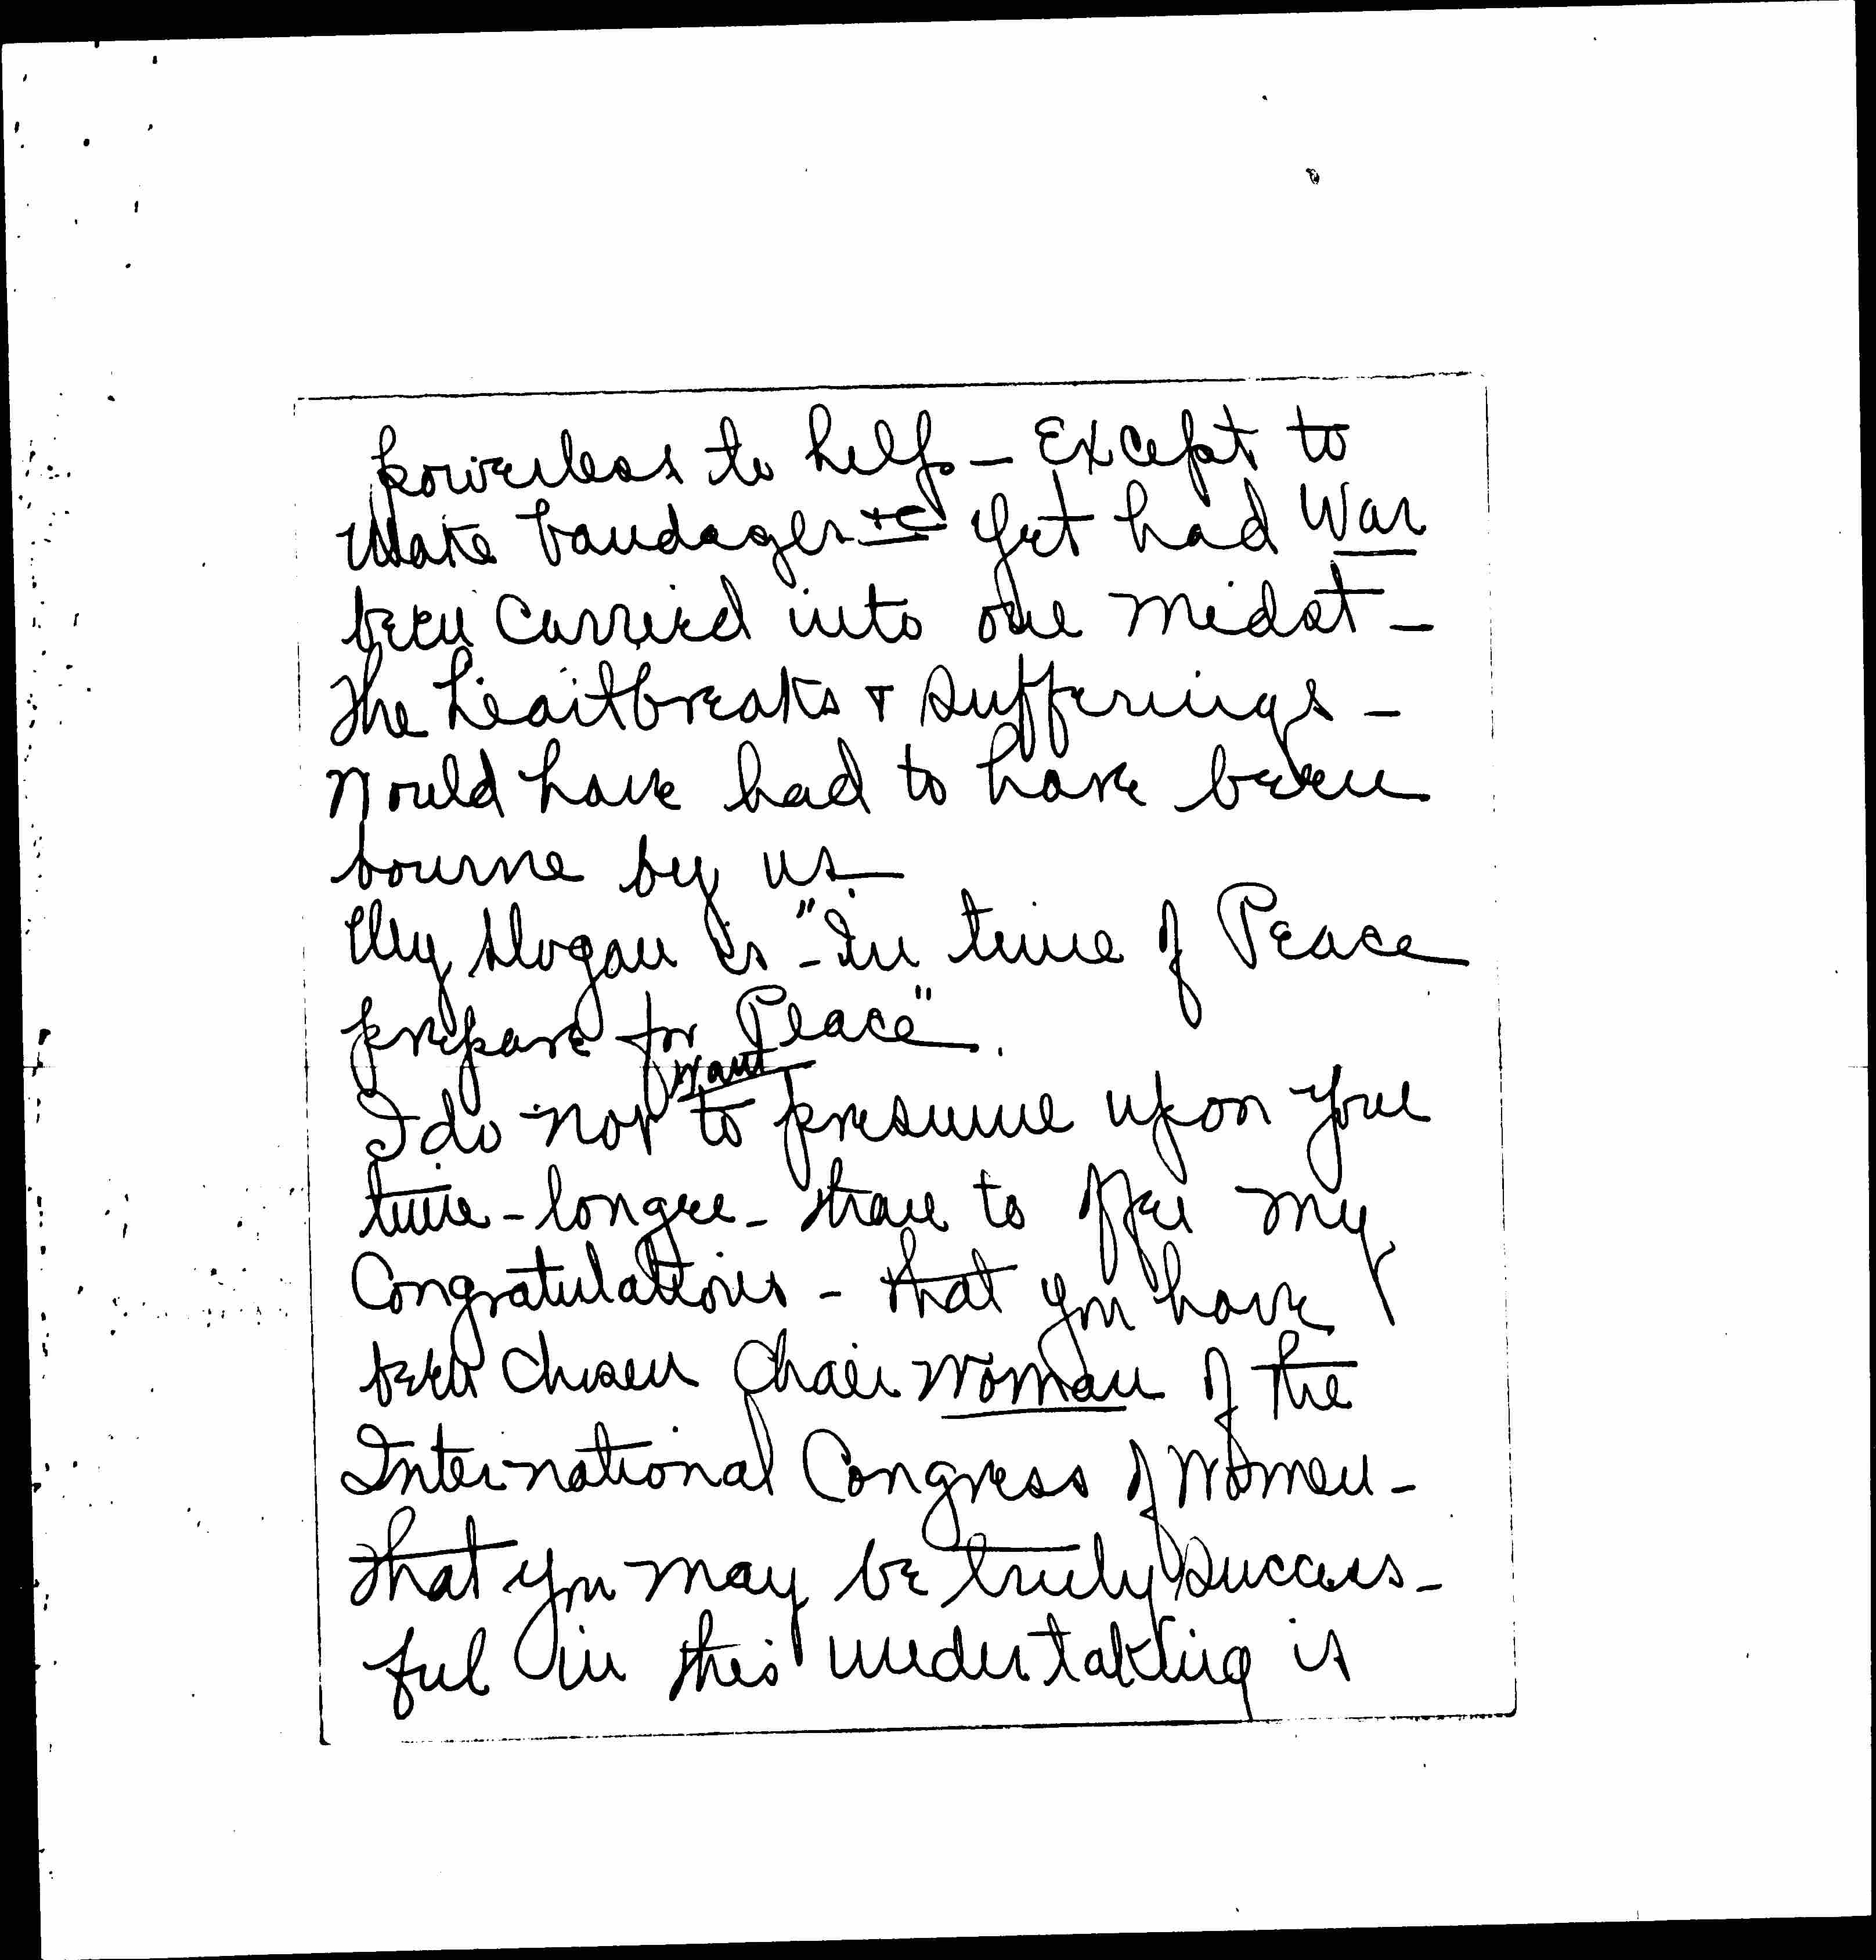 powerless to help - Except to
make bandages +c yet had War
been carried into our midst -
the heartbreaks + sufferings -
would have had to have been
bourne by us -
My slogan is - "In time of Peace
prepare for Peace".
want
I do not to presume upon your
time - longer - than to offer my
Congratulations - that you have
been chosen Chair woman of the
International Congress of Women -
that you may be truly success-
ful in this undertaking is